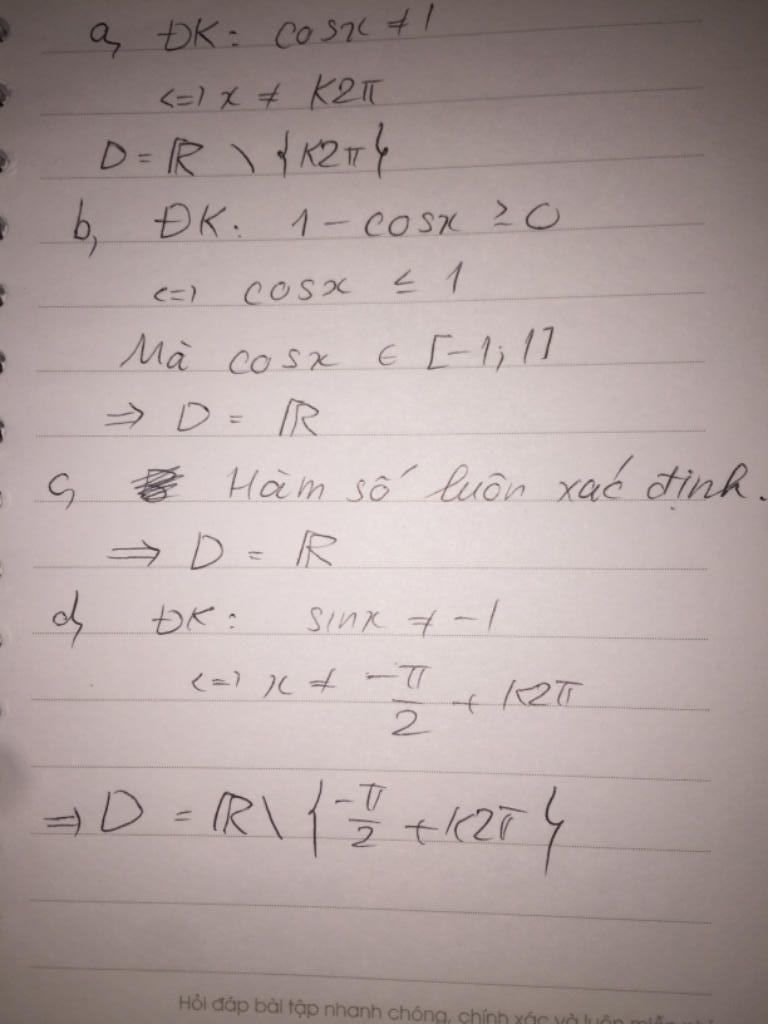 a, ĐK: cosx ≠ 1
<=> x ≠ K2π
D = ℝ \ {K2π}
b, ĐK: 1 - cosx ≥ 0
<=> cosx ≤ 1
Mà cosx ∈ [-1; 1]
=> D = ℝ
c, Hàm số luôn xác định.
=> D = ℝ
d, ĐK: sinx ≠ -1
<=> x ≠ -π/2 + K2π
=> D = ℝ \ {-π/2 + K2π}
Hỏi đáp bài tập nhanh chóng, chính xác và luôn miễn